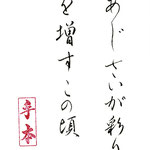 あじさいが彩り
を増すこの頃